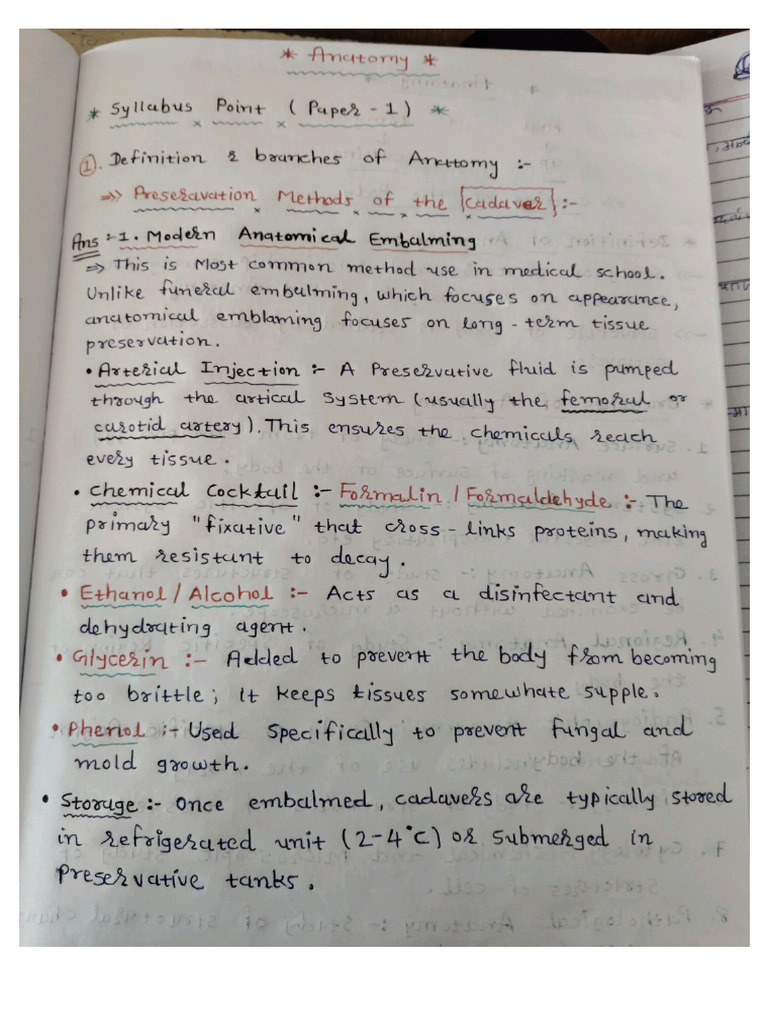 * Anatomy *
* Syllabus Point ( Paper - 1 ) *
① . Definition & branches of Anatomy :-
=>> Preseravation Methods of the [Cadaver] :-
Ans :- 1. Modern Anatomical Embalming
=> This is Most common method use in medical school.
Unlike funeral embalming, which focuses on appearance,
anatomical emblaming focuses on long - term tissue
preservation.
• Arterial Injection :- A Preservative fluid is pumped
through the artical system (usually the femoral or
carotid artery). This ensures the chemicals reach
every tissue.
• Chemical Cocktail :- Formalin / Formaldehyde :- The
primary "fixative" that cross - links proteins, making
them resistant to decay.
• Ethanol / Alcohol :- Acts as a disinfectant and
dehydrating agent.
• Glycerin :- Added to prevent the body from becoming
too brittle; it keeps tissues somewhate supple.
• Phenol :- Used specifically to prevent fungal and
mold growth.
• Storage :- Once embalmed, cadavers are typically stored
in refrigerated unit (2-4°C) or submerged in
preservative tanks.